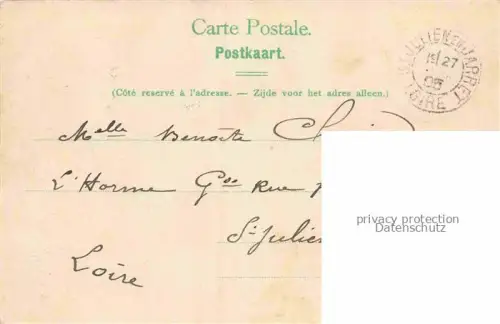 Carte Postale.
Postkaart.
(Côté reservé à l'adresse. — Zijde voor het adres alleen.)
ST JULIEN EN JARRET
15/27
05
LOIRE
Melle Benoîte
L'Horme Gde Rue
St Julien
Loire
privacy protection
Datenschutz